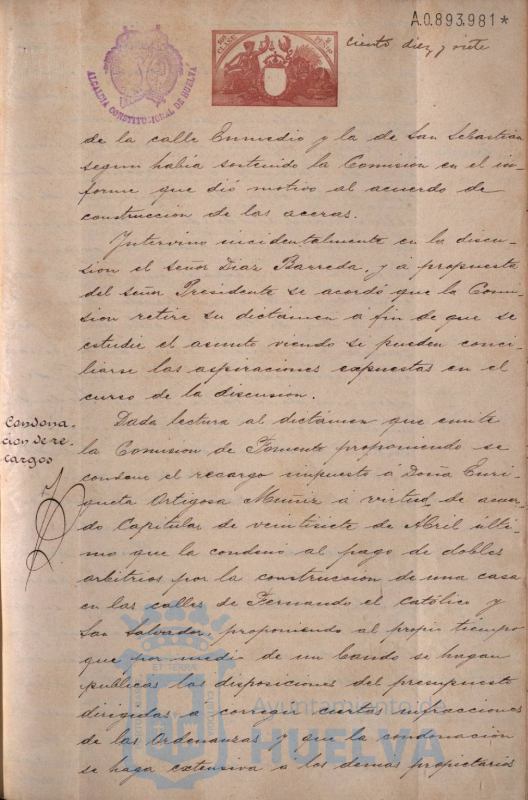 A.0.893,981*
ciento diez y siete
ALCALDIA CONSTITUCIONAL DE HUELVA
de la calle Enmedio y la de San Sebastian
segun había sostenido la Comisión en el in-
forme que dió motivo al acuerdo de
construccion de las aceras.
Intervino incidentalmente en la discu-
sion el señor Diaz Barreda, y á propuesta
del señor Presidente se acordó que la Comi-
sion retire su dictámen a fin de que se
estudie el asunto viendo se pueden conci-
liarse las aspiraciones expuestas en el
curso de la discusion.
Condona-
cion de re-
cargos
Dada lectura al dictámen que emite
la Comision de Fomento proponiendo se
condone el recargo impuesto á Doña Enri-
queta Ortigosa Muñiz á virtud de acuer-
do Capitular de veintisiete de Abril últi-
mo que la condenó al pago de dobles
arbitrios por la construccion de una casa
en las calles de Fernando el Católico y
San Salvador, proponiendo al propio tiempo
que por medio de un bando se hagan
publicas las disposiciones del presupuesto
dirigidas a corregir ciertas infracciones
de las Ordenanzas y que la condonación
se haga extensiva a los demas propietarios
Ayuntamiento de
HUELVA